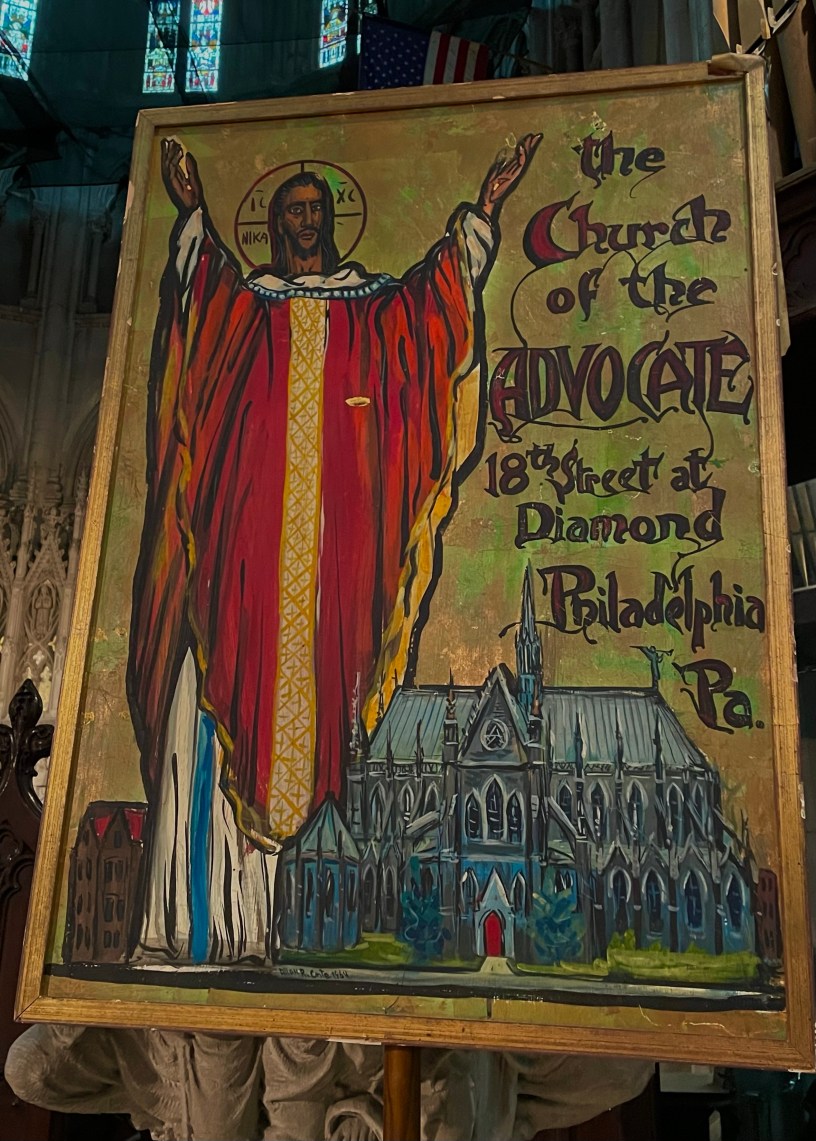 the
Church
of the
ADVOCATE
18th Street at
Diamond
Philadelphia
Pa.
IC XC
NIKA